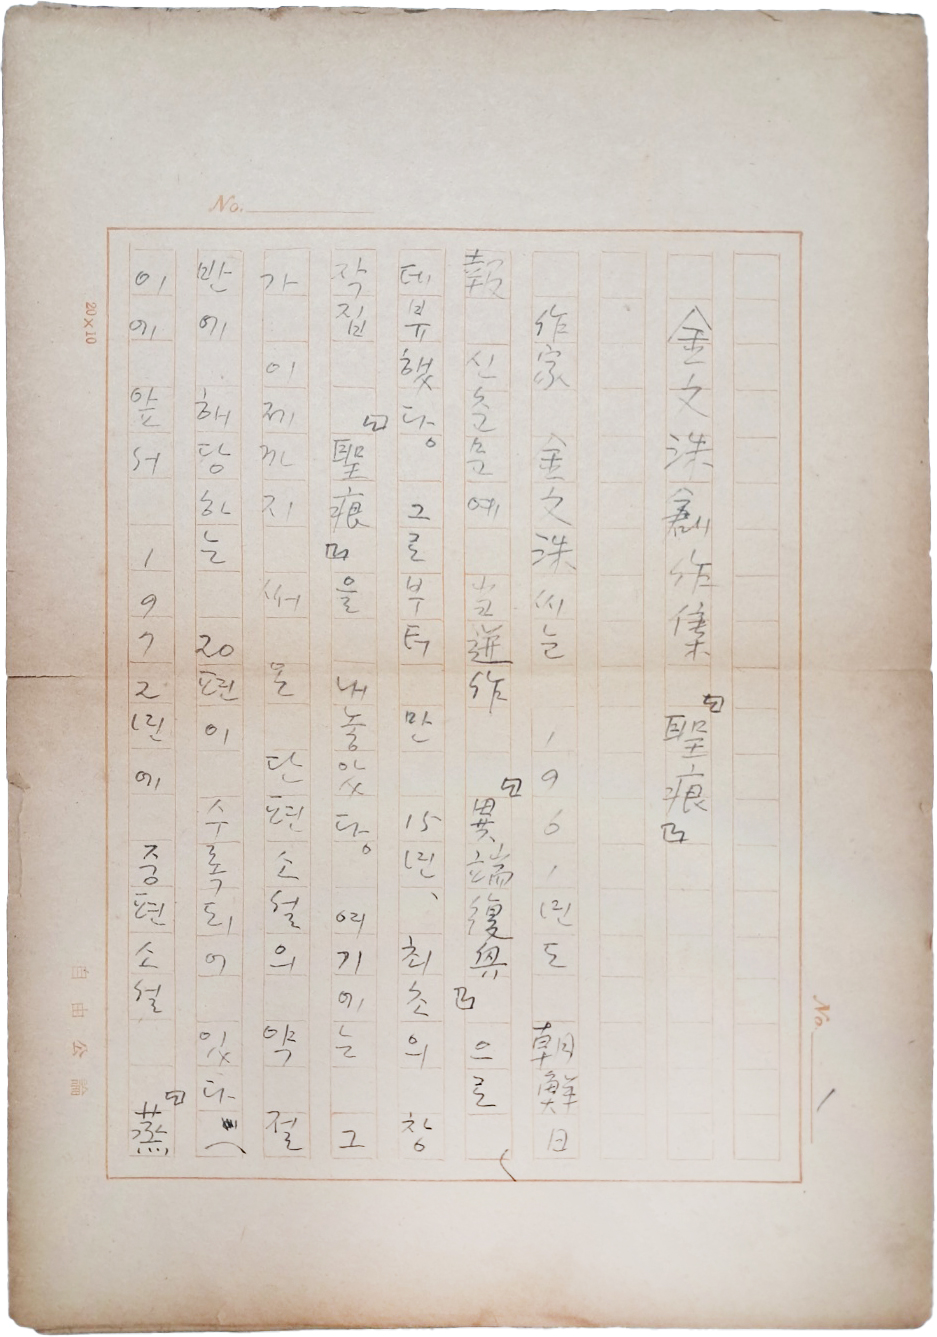 No. 1
金文洙創作集『聖痕』
作家 金文洙씨는 1961년도 朝鮮日
報 신춘문예 当選作 『異端復興』으로
데뷔했다. 그로부터 만 15년, 최초의 창
작집 『聖痕』을 내놓았다. 여기에는 그
가 이제까지 써 온 단편소설의 약 절
반에 해당하는 20편이 수록되어 있다.
이에 앞서 1972년에 중편소설 『蒸
No.
20x10
自由公論